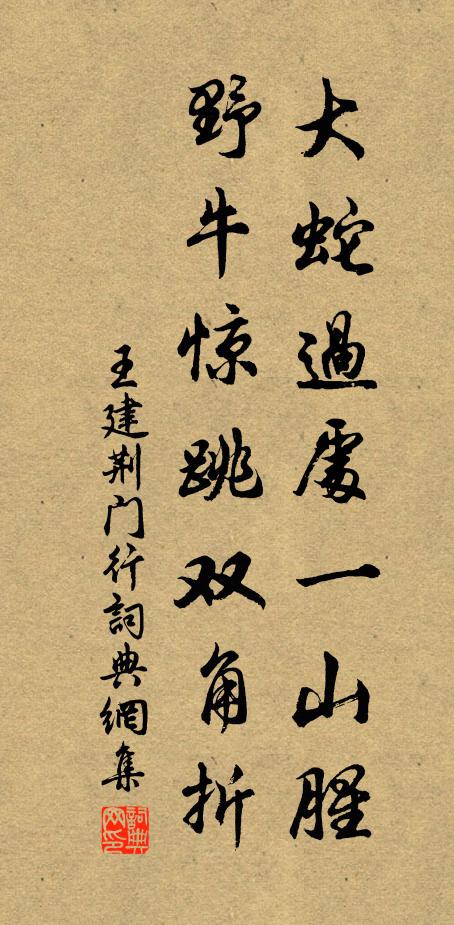 大蛇過處一山腥
野牛惊跳双角折
王建荆门行詞典網集
詞典网印